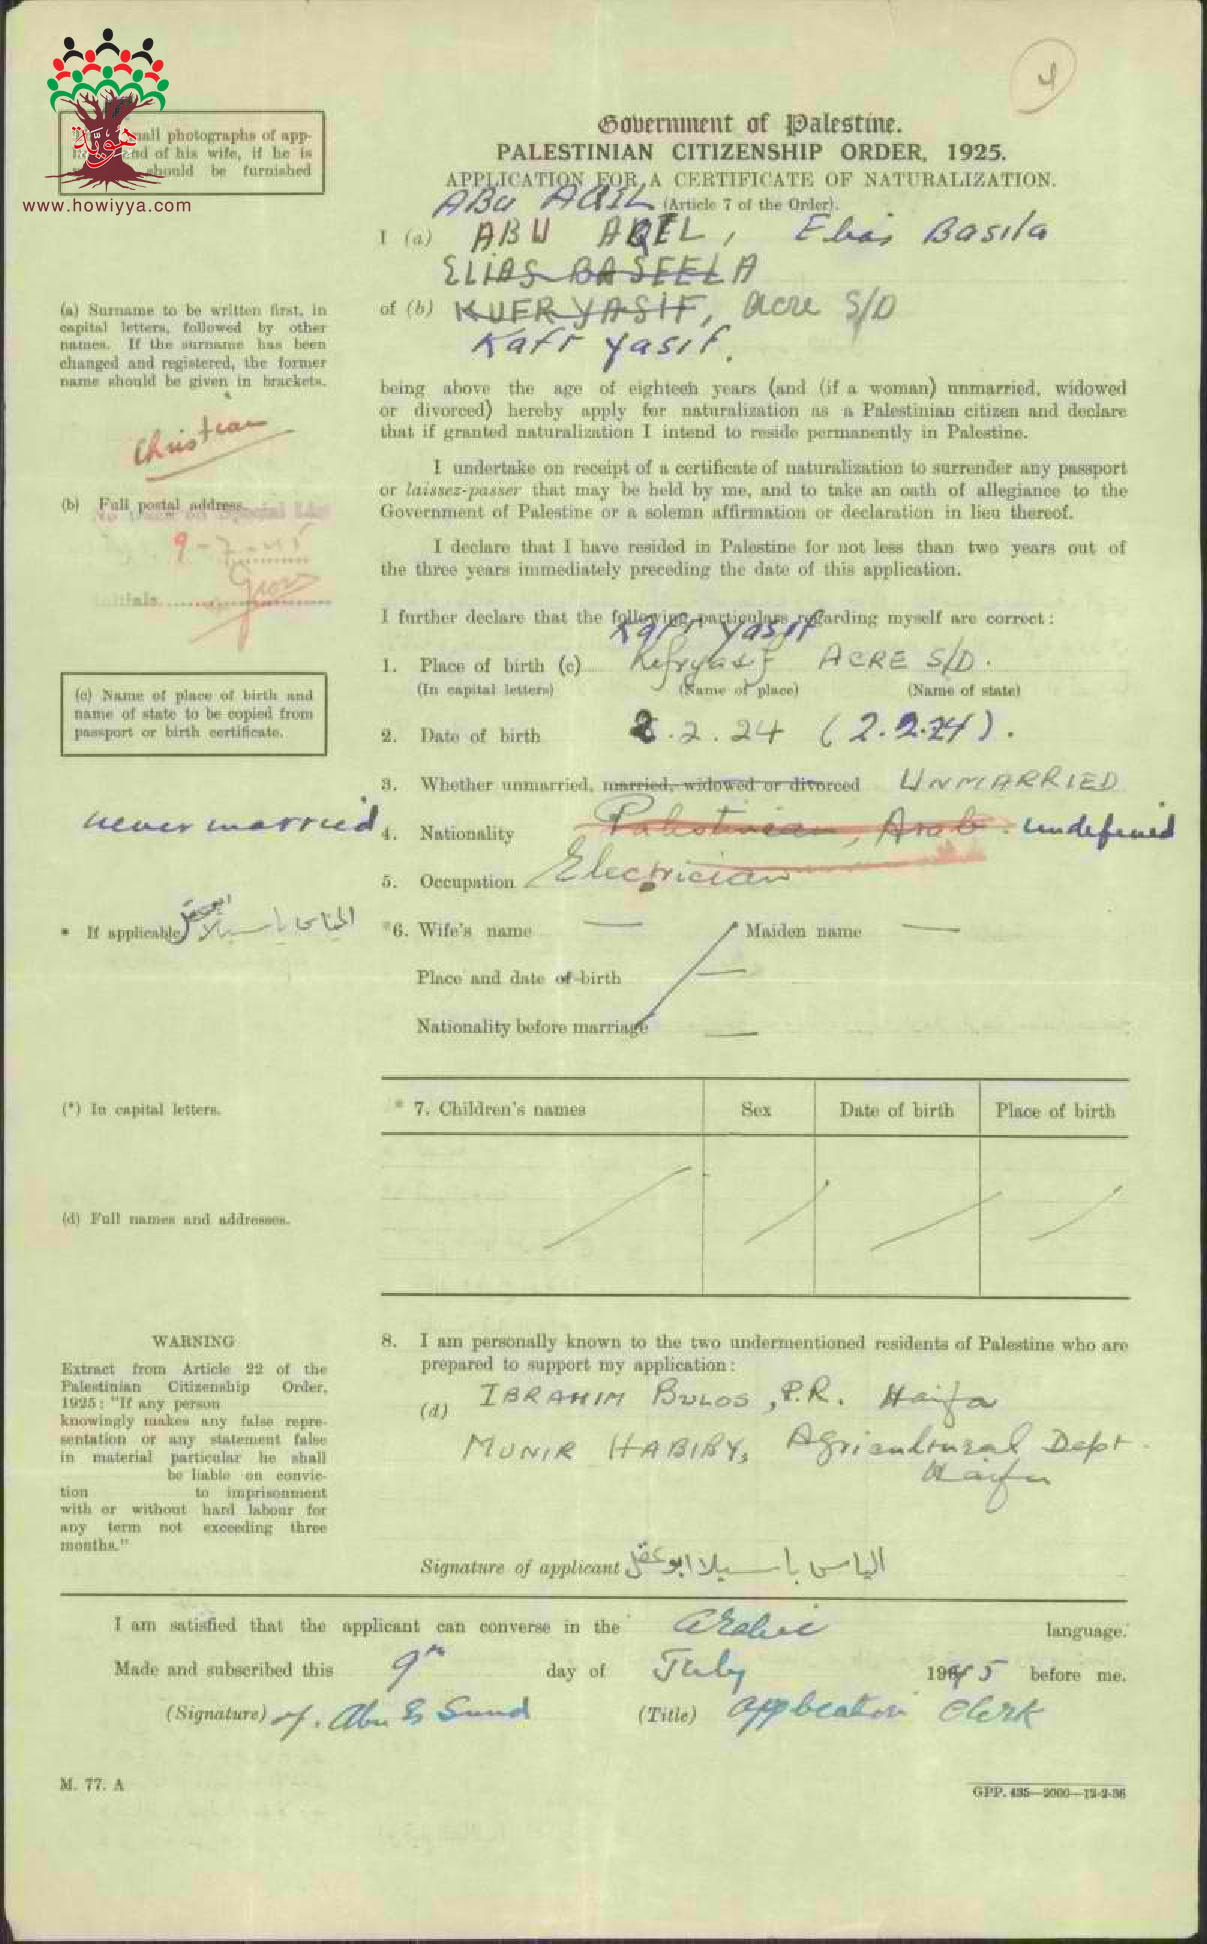 4
هويّة
www.howiyya.com
small photographs of app-
and of his wife, if he is
should be furnished
Government of Palestine.
PALESTINIAN CITIZENSHIP ORDER, 1925.
APPLICATION FOR A CERTIFICATE OF NATURALIZATION.
(Article 7 of the Order).
ABU AQIL
I (a) ABU AQEL, Elias Basila
ELIAS BASEELA
of (b) KUFR YASIF, Acre S/D
Kafr Yasif.
(a) Surname to be written first, in
capital letters, followed by other
names. If the surname has been
changed and registered, the former
name should be given in brackets.
Christian
(b) Full postal address.
No trace on Special List
9-7-45
Initials
being above the age of eighteen years (and (if a woman) unmarried, widowed
or divorced) hereby apply for naturalization as a Palestinian citizen and declare
that if granted naturalization I intend to reside permanently in Palestine.
I undertake on receipt of a certificate of naturalization to surrender any passport
or laissez-passer that may be held by me, and to take an oath of allegiance to the
Government of Palestine or a solemn affirmation or declaration in lieu thereof.
I declare that I have resided in Palestine for not less than two years out of
the three years immediately preceding the date of this application.
I further declare that the following particulars regarding myself are correct:
Kafr Yasif
1. Place of birth (c) Kefryasif ACRE S/D.
(In capital letters) (Name of place) (Name of state)
(c) Name of place of birth and
name of state to be copied from
passport or birth certificate.
2. Date of birth 2.2.24 (2.2.24).
3. Whether unmarried, married, widowed or divorced UNMARRIED
never married
4. Nationality Palestinian, Arab. undefined
5. Occupation Electrician
* If applicable الياس باسيلا ابو عقل
*6. Wife's name — Maiden name —
Place and date of birth —
Nationality before marriage —
(*) In capital letters.
* 7. Children's names Sex Date of birth Place of birth
(d) Full names and addresses.
WARNING
Extract from Article 22 of the
Palestinian Citizenship Order,
1925: "If any person
knowingly makes any false repre-
sentation or any statement false
in material particular he shall
be liable on convic-
tion to imprisonment
with or without hard labour for
any term not exceeding three
months."
8. I am personally known to the two undermentioned residents of Palestine who are
prepared to support my application:
(d) IBRAHIM BULOS, P.R. Haifa
MUNIR HABIBY, Agricultural Dept.
Haifa
Signature of applicant الياس باسيلا ابو عقل
I am satisfied that the applicant can converse in the Arabic language.
Made and subscribed this 9th day of July 1945 before me.
(Signature) (Title) Application Clerk
M. 77. A
GPP. 435—2000—12-2-36